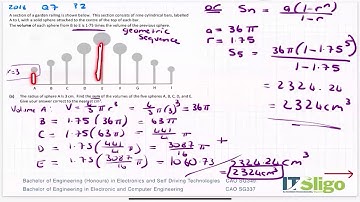 2018 Q7 P2
A section of a garden railing is shown below. This section consists of nine cylindrical bars, labelled
A to I, with a solid sphere attached to the centre of the top of each bar.
The volume of each sphere from B to E is 1·75 times the volume of the previous sphere.
geometric
sequence
r=3
A B C D E F G H I
(a) The radius of sphere A is 3 cm. Find the sum of the volumes of the five spheres A, B, C, D, and E.
Give your answer correct to the nearest cm³.
Volume A: V = 4/3 π r³ = 4/3 π (3)³ = 36π
B = 1.75 (36π) = 63π
C = 1.75 (63π) = 441/4 π
D = 1.75 (441/4 π) = 3087/16 π
E = 1.75 (3087/16 π) = 1060.73
2324.24 cm³
2324 cm³
OR Sn = a(1-rⁿ)/1-r
a = 36π
r = 1.75
S5 = 36π(1-1.75⁵)/1-1.75
= 2324.24
= 2324 cm³
Bachelor of Engineering (Honours) in Electronics and Self Driving Technologies CAO SG346
Bachelor of Engineering in Electronic and Computer Engineering CAO SG337
IT sligo